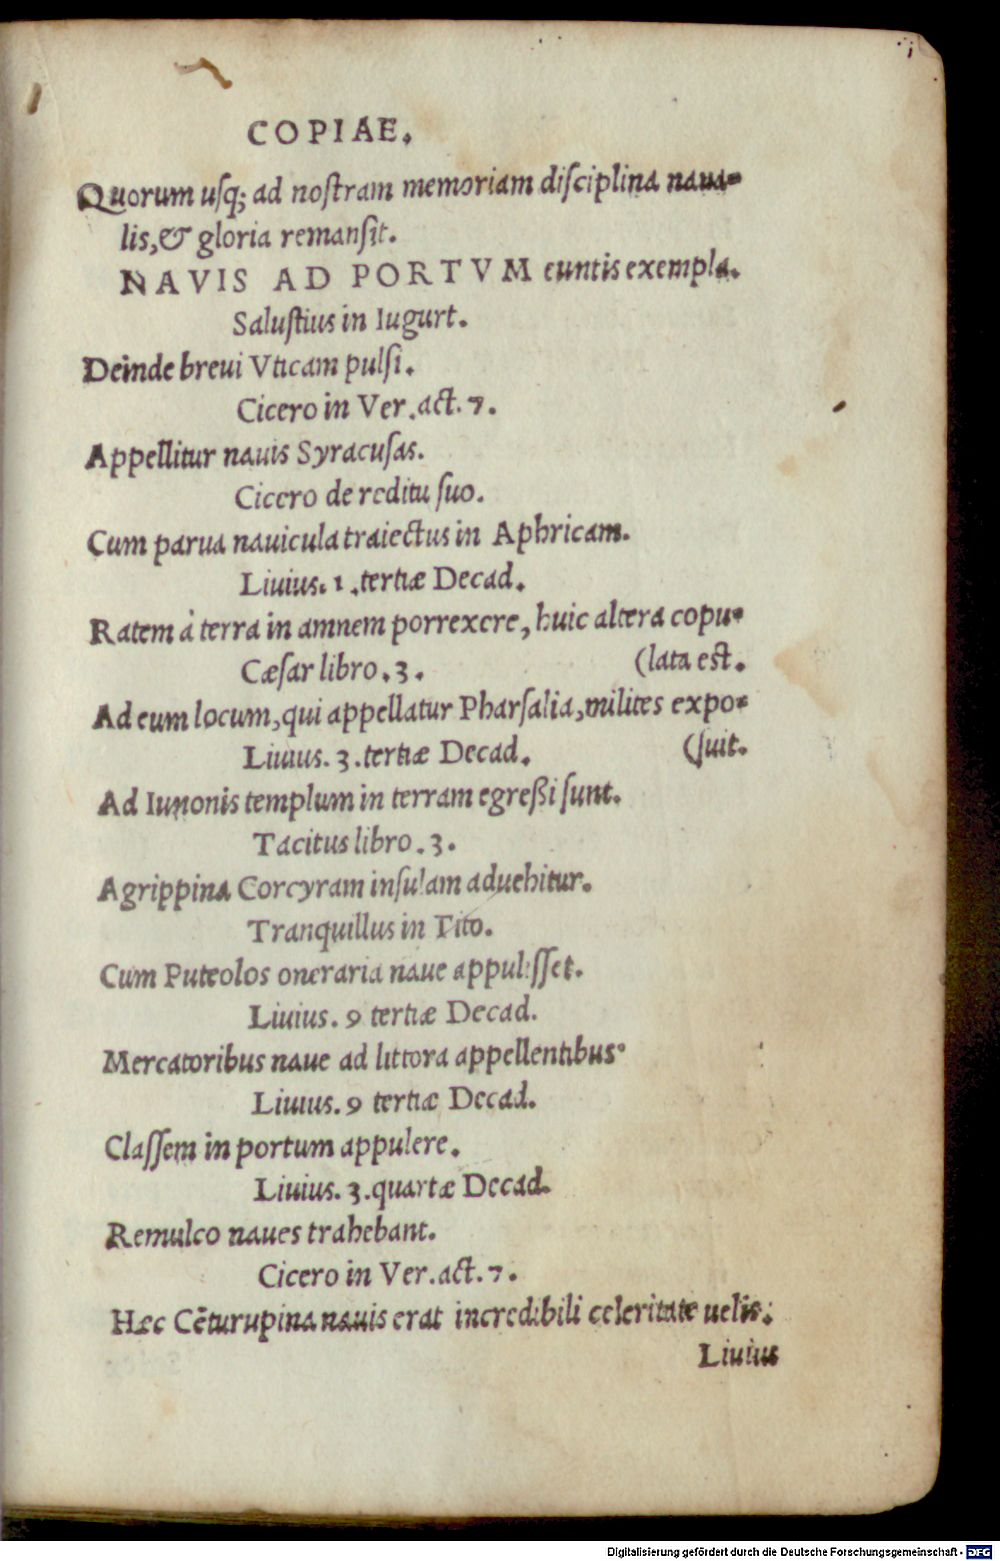 COPIAE.
Quorum uſq; ad noſtram memoriam diſciplina naua-
lis,& gloria remanſit.
NAVIS AD PORTVM euntis exempla.
Saluſtius in Iugurt.
Deinde breui Vticam pulſi.
Cicero in Ver.act.7.
Appellitur nauis Syracuſas.
Cicero de reditu ſuo.
Cum parua nauicula traiectus in Aphricam.
Liuius.1.tertiæ Decad.
Ratem à terra in amnem porrexere, huic altera copu-
Cæſar libro.3. (lata est.
Ad eum locum,qui appellatur Pharſalia,milites expo-
Liuius.3.tertiæ Decad. (ſuit.
Ad Iunonis templum in terram egreßi ſunt.
Tacitus libro.3.
Agrippina Corcyram inſulam aduehitur.
Tranquillus in Tito.
Cum Puteolos oneraria naue appuliſſet.
Liuius.9 tertiæ Decad.
Mercatoribus naue ad littora appellentibus.
Liuius.9 tertiæ Decad.
Claſſem in portum appulere.
Liuius.3.quartæ Decad.
Remulco naues trahebant.
Cicero in Ver.act.7.
Hæc Cēturupina nauis erat incredibili celeritate uelis:
Liuius
Digitalisierung gefördert durch die Deutsche Forschungsgemeinschaft - DFG